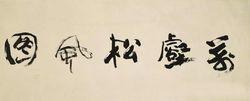 萬壑松風圖